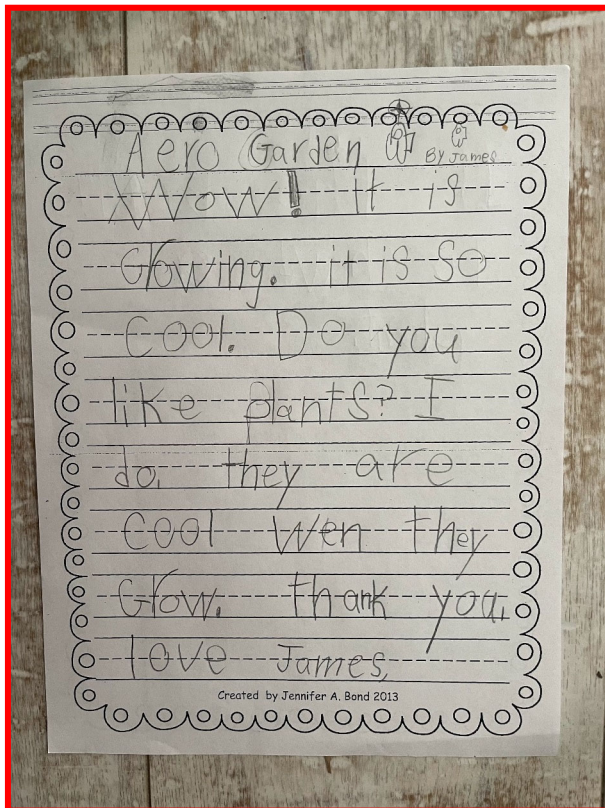 Aero Garden
By James
Wow! it is
Glowing. it is so
Cool. Do you
like plants? I
do. they are
Cool Wen they
Glow. thank you.
love James.
Created by Jennifer A. Bond 2013